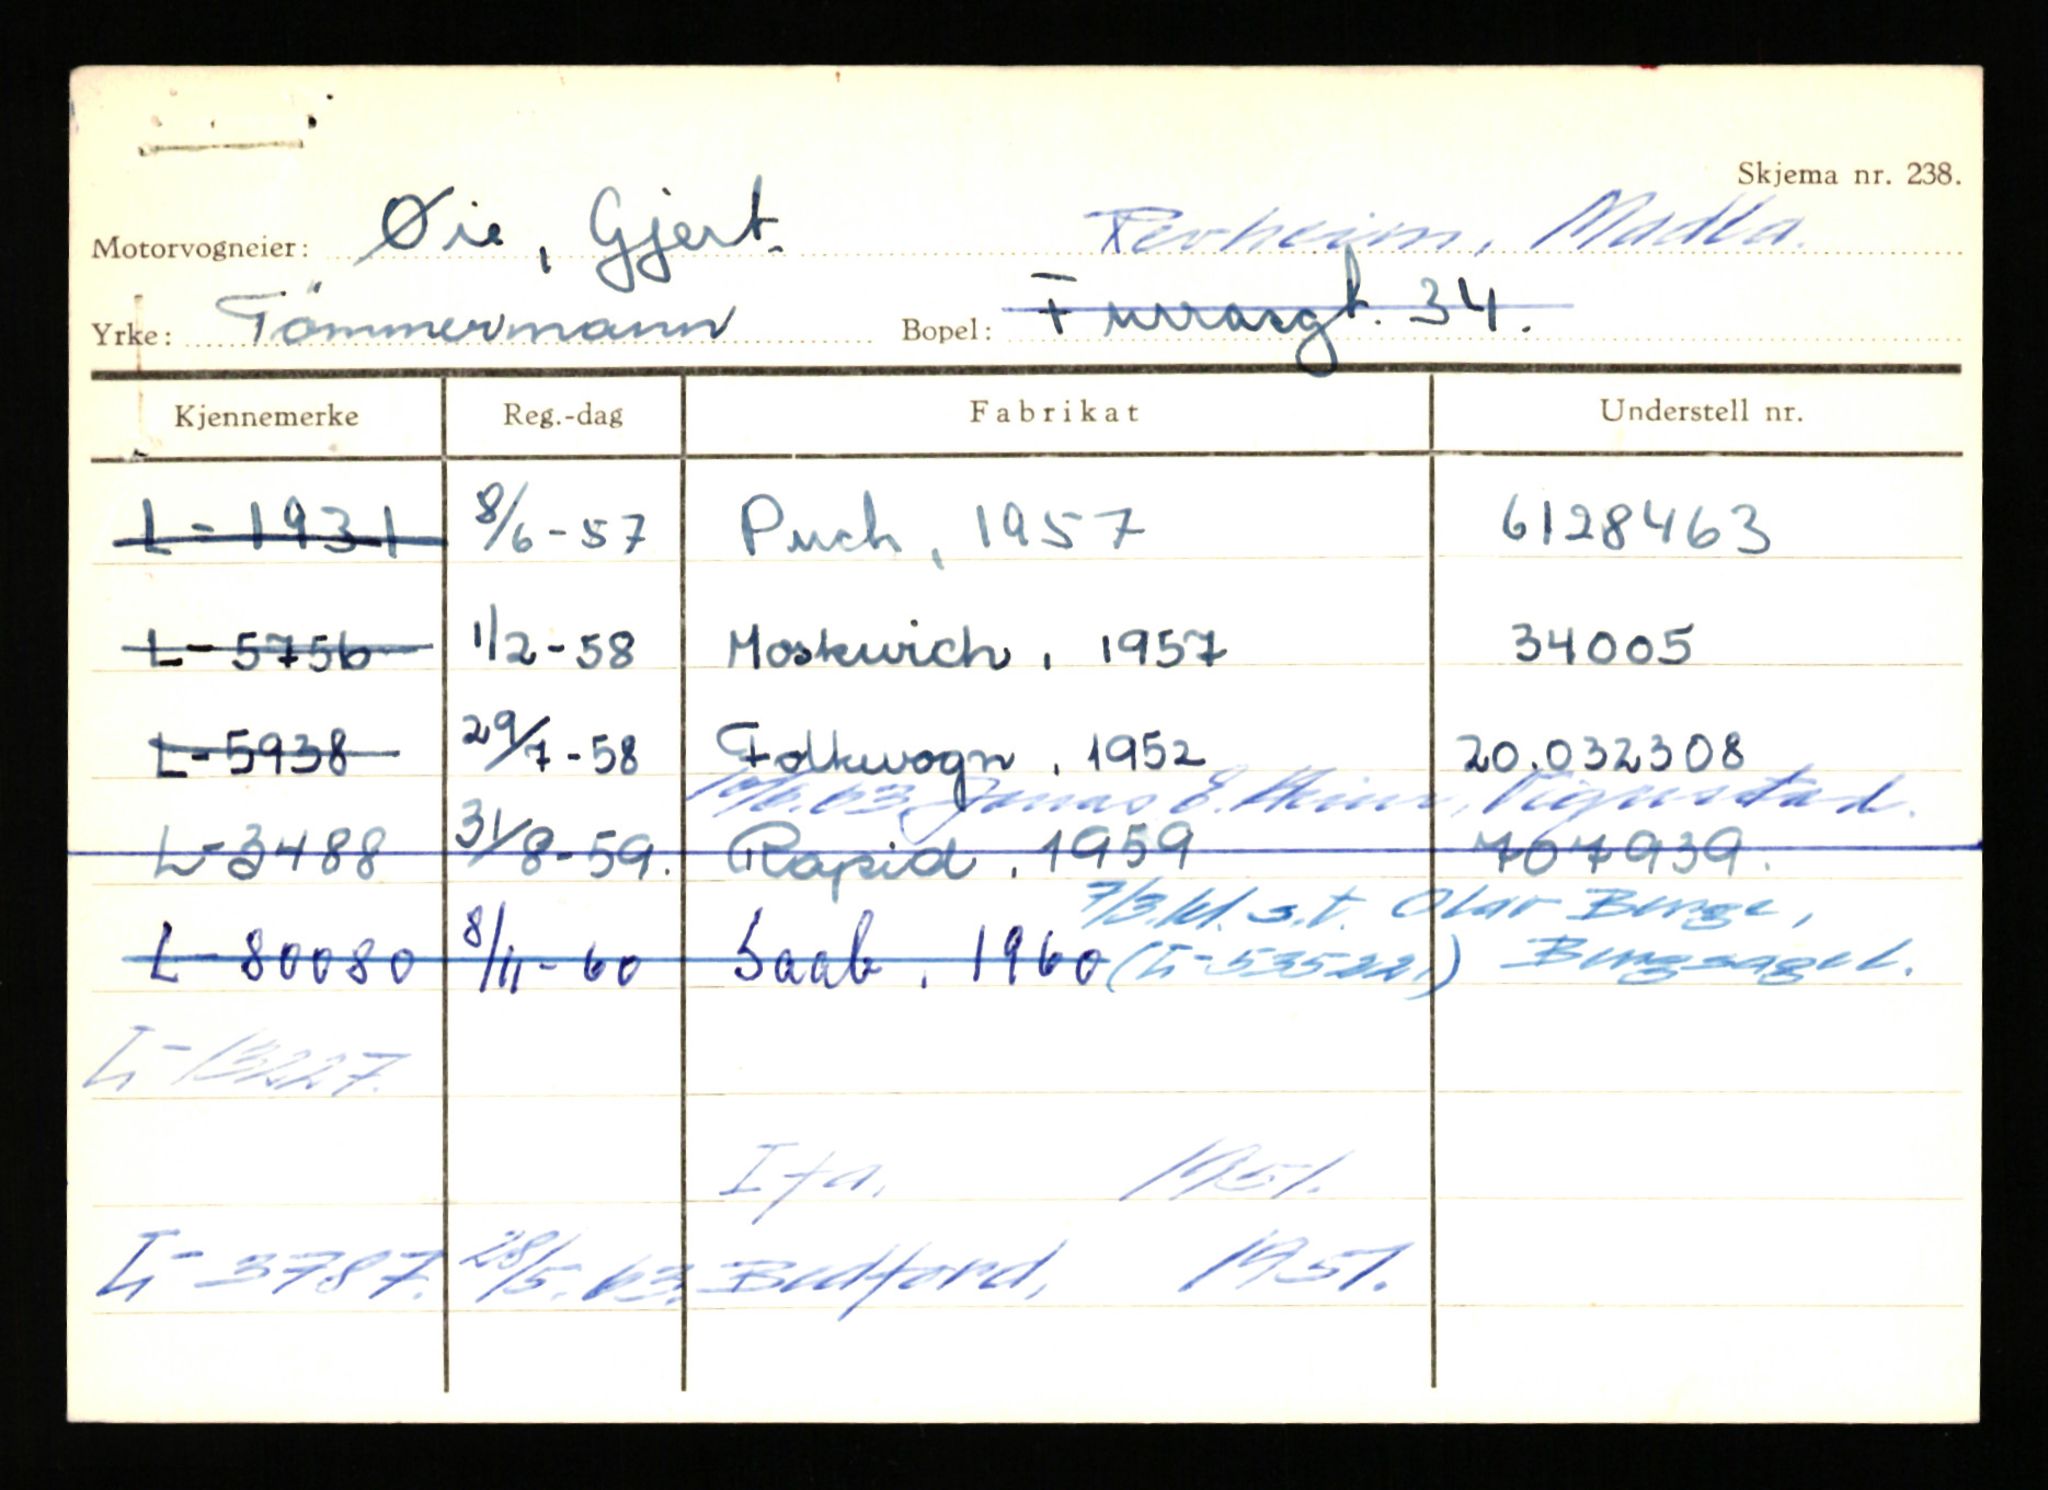 Skjema nr. 238.
Motorvogneier: Øie, Gjert. Revheim, Madla.
Yrke: Tömmermann Bopel: Furrasgt. 34.
Kjennemerke Reg.-dag Fabrikat Understell nr.
L-1931 8/6-57 Puch, 1957 6128463
L-5756 1/2-58 Moskwich, 1957 34005
L-5938 29/7-58 Folkwogn, 1952 20.032308
63 Jonas E. Vigrestad.
L-3488 31/8-59. Rapid, 1959 707939.
7/3.61. s.t. Olav Berge,
L-80080 8/11-60 Saab, 1960 (L-53522.) Bergsagel.
L-13227.
Ifa. 1951.
L-3787. 28/5.63. Bedford, 1951.